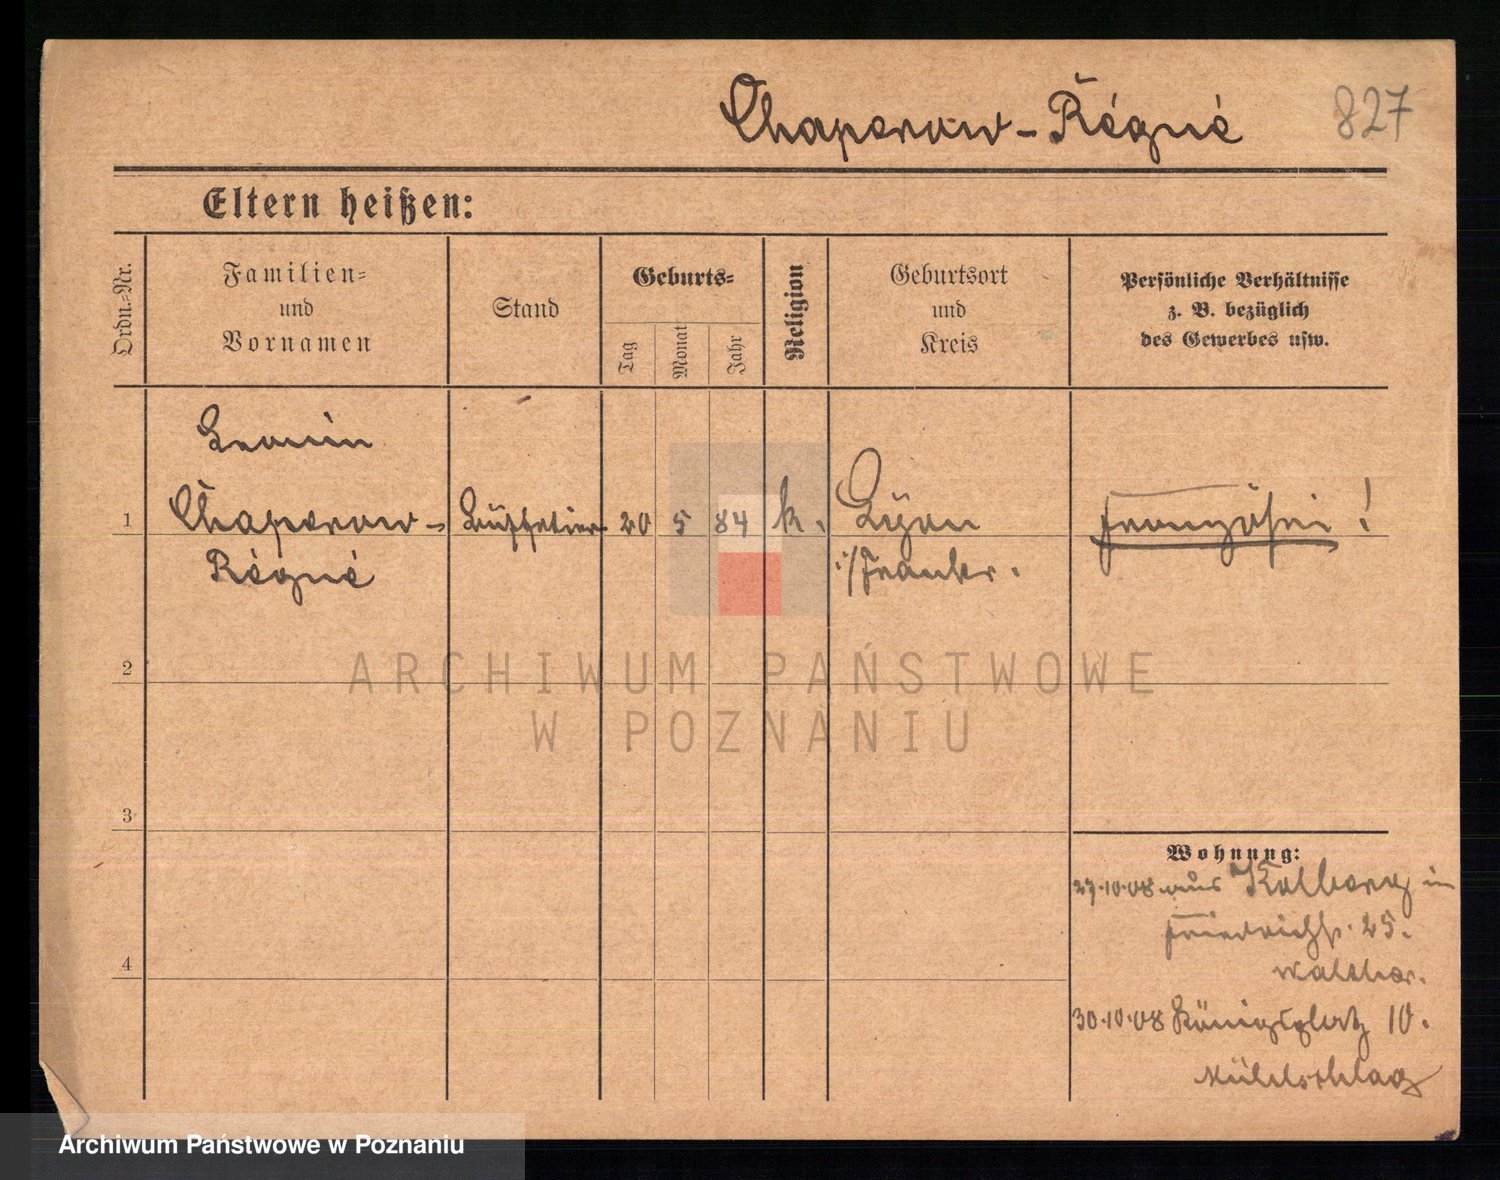 Chaperow-Régné 827
Eltern heißen:
Ordn.-Nr.
Familien-
und
Vornamen
Stand
Geburts-
Tag
Monat
Jahr
Religion
Geburtsort
und
Kreis
Persönliche Verhältnisse
z. B. bezüglich
des Gewerbes usw.
1
Chaperow-
Régné
Büffetier
20 5 84 k.
Lyon
i/Frankr.
2
3
4
Wohnung:
27.10.08 aus Kolberg in
Friedrichstr. 25.
Walther.
30.10.08 Königsplatz 10.
Mühlschlag
ARCHIWUM PAŃSTWOWE
W POZNANIU
Archiwum Państwowe w Poznaniu